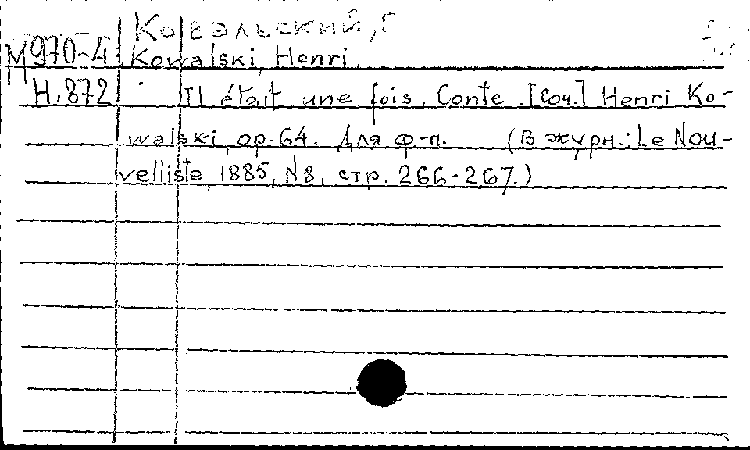 Ковальский, Г
М970-4 Kowalski, Henri.
Н.872 Il était une fois. Conte. [Соч.] Henri Ko-
walski, op. 64. Для ф-п. (В журн.: Le Nou-
velliste, 1885, N8, стр. 266-267.)